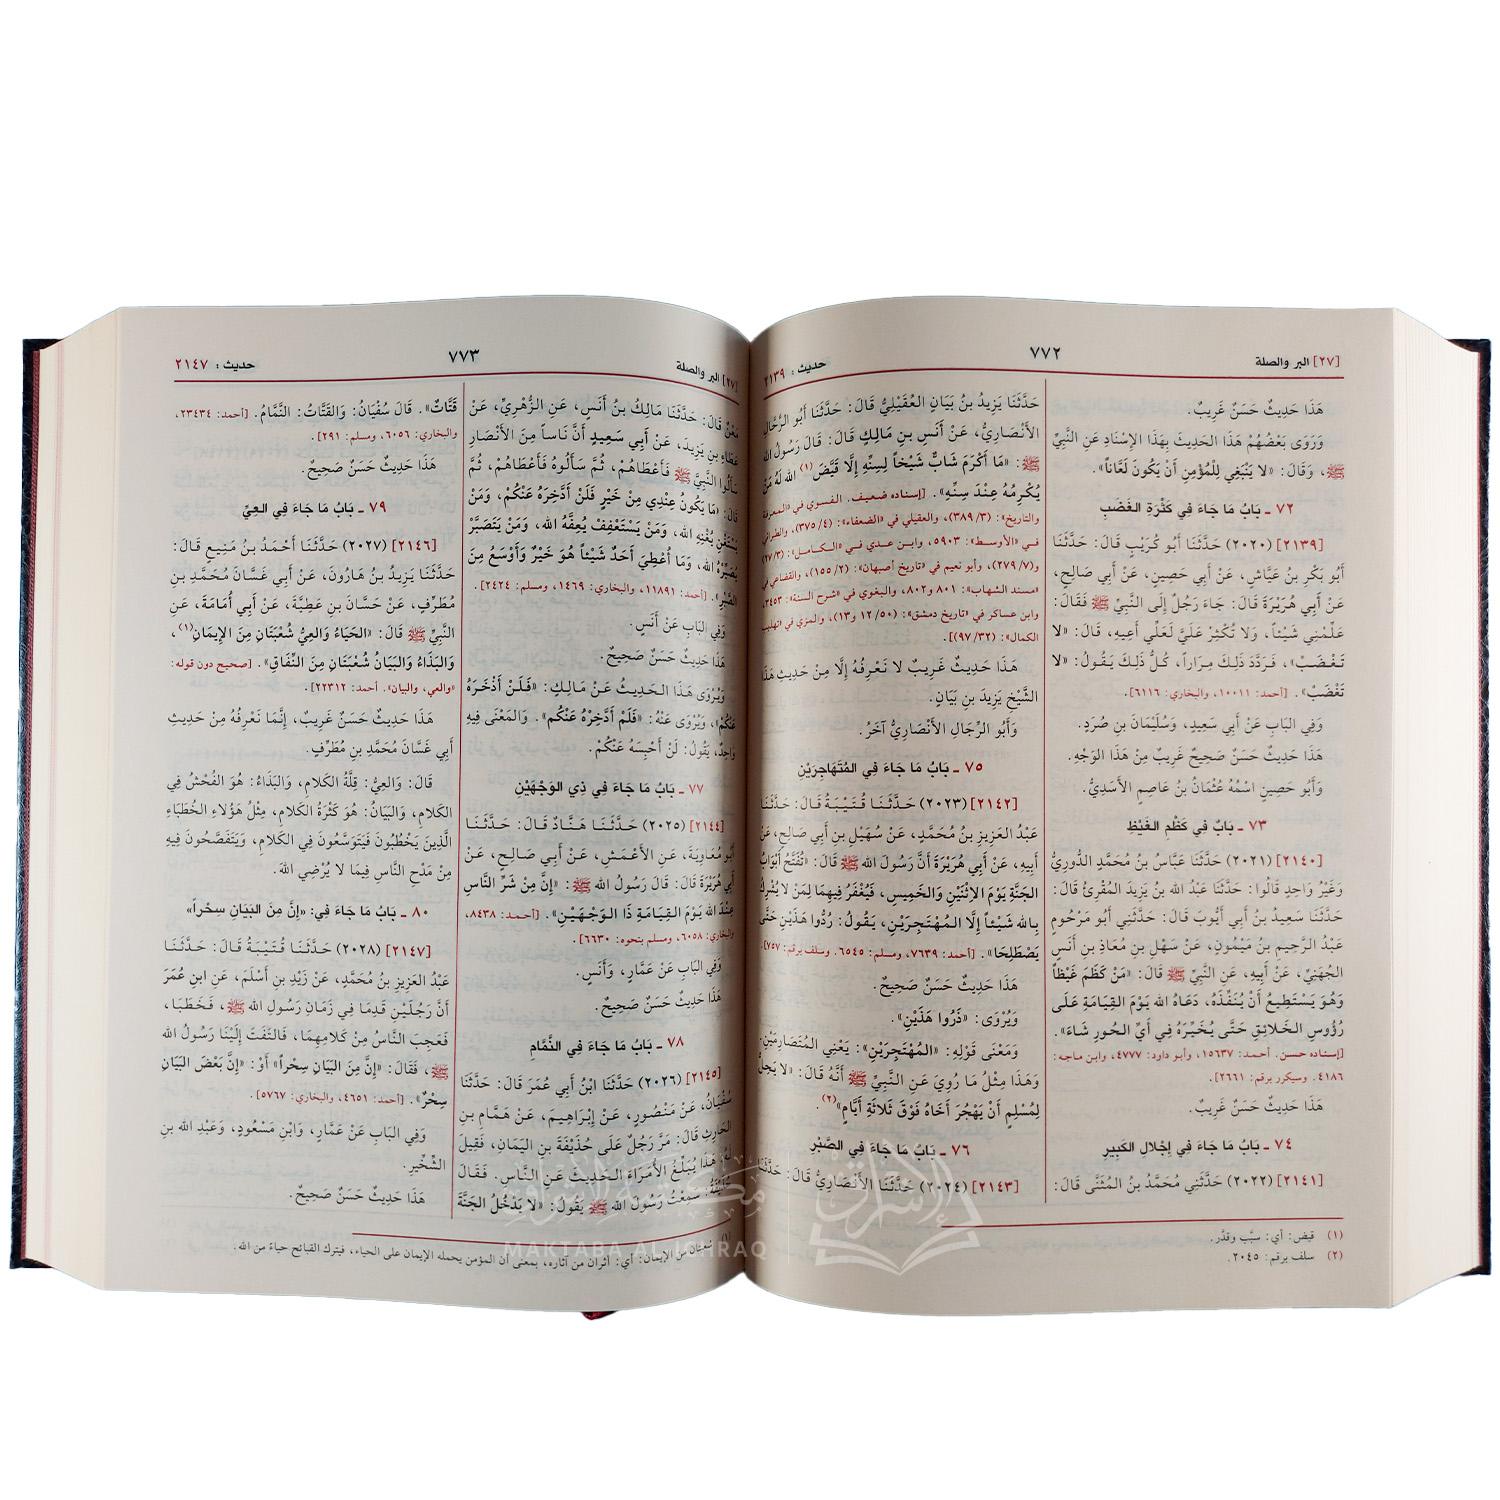 [٢٧] البر والصلة
٧٧٢
حديث : ٢١٣٩
هَذَا حَدِيثٌ حَسَنٌ غَرِيبٌ.
وَرَوَى بَعْضُهُمْ هَذَا الحَدِيثَ بِهَذَا الإِسْنَادِ عَنِ النَّبِيِّ
ﷺ، وَقَالَ: «لَا يَنْبَغِي لِلْمُؤْمِنِ أَنْ يَكُونَ لَعَّاناً».
٧٢ ـ بَابُ مَا جَاءَ فِي كَثْرَةِ الغَضَبِ
[٢١٣٩] (٢٠٢٠) حَدَّثَنَا أَبُو كُرَيْبٍ قَالَ: حَدَّثَنَا
أَبُو بَكْرِ بنُ عَيَّاشٍ، عَنْ أَبِي حَصِينٍ، عَنْ أَبِي صَالِحٍ،
عَنْ أَبِي هُرَيْرَةَ قَالَ: جَاءَ رَجُلٌ إِلَى النَّبِيِّ ﷺ فَقَالَ:
عَلِّمْنِي شَيْئاً، وَلَا تُكْثِرْ عَلَيَّ لَعَلِّي أَعِيهِ، قَالَ: «لَا
تَغْضَبْ»، فَرَدَّدَ ذَلِكَ مِرَاراً، كُلُّ ذَلِكَ يَقُولُ: «لَا
تَغْضَبْ». [أحمد: ١٠٠١١، والبخاري: ٦١١٦].
وَفِي البَابِ عَنْ أَبِي سَعِيدٍ، وَسُلَيْمَانَ بنِ صُرَدٍ.
هَذَا حَدِيثٌ حَسَنٌ صَحِيحٌ غَرِيبٌ مِنْ هَذَا الوَجْهِ.
وَأَبُو حَصِينٍ اسْمُهُ عُثْمَانُ بنُ عَاصِمٍ الأَسَدِيُّ.
٧٣ ـ بَابٌ فِي كَظْمِ الغَيْظِ
[٢١٤٠] (٢٠٢١) حَدَّثَنَا عَبَّاسُ بنُ مُحَمَّدٍ الدُّورِيُّ
وَغَيْرُ وَاحِدٍ قَالُوا: حَدَّثَنَا عَبْدُ الله بنُ يَزِيدَ المُقْرِئُ قَالَ:
حَدَّثَنَا سَعِيدُ بنُ أَبِي أَيُّوبَ قَالَ: حَدَّثَنِي أَبُو مَرْحُومٍ
عَبْدُ الرَّحِيمِ بنُ مَيْمُونٍ، عَنْ سَهْلِ بنِ مُعَاذِ بنِ أَنَسٍ
الجُهَنِيِّ، عَنْ أَبِيهِ، عَنِ النَّبِيِّ ﷺ قَالَ: «مَنْ كَظَمَ غَيْظاً
وَهُوَ يَسْتَطِيعُ أَنْ يُنَفِّذَهُ، دَعَاهُ الله يَوْمَ القِيَامَةِ عَلَى
رُؤُوسِ الخَلَائِقِ حَتَّى يُخَيِّرَهُ فِي أَيِّ الحُورِ شَاءَ».
[إسناده حسن. أحمد: ١٥٦٣٧، وأبو داود: ٤٧٧٧، وابن ماجه:
٤١٨٦. وسيكرر برقم: ٢٦٦١].
هَذَا حَدِيثٌ حَسَنٌ غَرِيبٌ.
٧٤ ـ بَابُ مَا جَاءَ فِي إِجْلَالِ الكَبِيرِ
[٢١٤١] (٢٠٢٢) حَدَّثَنِي مُحَمَّدُ بنُ المُثَنَّى قَالَ:
حَدَّثَنَا يَزِيدُ بنُ بَيَانٍ العُقَيْلِيُّ قَالَ: حَدَّثَنَا أَبُو الرَّحَّالِ
الأَنْصَارِيُّ، عَنْ أَنَسِ بنِ مَالِكٍ قَالَ: قَالَ رَسُولُ الله
ﷺ: «مَا أَكْرَمَ شَابٌّ شَيْخاً لِسِنِّهِ إِلَّا قَيَّضَ(١) الله لَهُ مَنْ
يُكْرِمُهُ عِنْدَ سِنِّهِ». [إسناده ضعيف. الفسوي في «المعرفة
والتاريخ»: (٣/ ٣٨٩)، والعقيلي في «الضعفاء»: (٤/ ٣٧٥)، والطبراني
في «الأوسط»: ٥٩٠٣، وابن عدي في «الكامل»: (٣/ ٢٧)
و(٧/ ٢٧٩)، وأبو نعيم في «تاريخ أصبهان»: (٢/ ١٥٥)، والقضاعي في
«مسند الشهاب»: ٨٠١ و٨٠٢، والبغوي في «شرح السنة»: ٣٤٥٣،
وابن عساكر في «تاريخ دمشق»: (٥٠/ ١٢ و١٣)، والمزي في «تهذيب
الكمال»: (٣٢/ ٩٧)].
هَذَا حَدِيثٌ غَرِيبٌ لَا نَعْرِفُهُ إِلَّا مِنْ حَدِيثِ هَذَا
الشَّيْخِ يَزِيدَ بنِ بَيَانٍ.
وَأَبُو الرِّجَالِ الأَنْصَارِيُّ آخَرُ.
٧٥ ـ بَابُ مَا جَاءَ فِي المُتَهَاجِرَيْنِ
[٢١٤٢] (٢٠٢٣) حَدَّثَنَا قُتَيْبَةُ قَالَ: حَدَّثَنَا
عَبْدُ العَزِيزِ بنُ مُحَمَّدٍ، عَنْ سُهَيْلِ بنِ أَبِي صَالِحٍ، عَنْ
أَبِيهِ، عَنْ أَبِي هُرَيْرَةَ أَنَّ رَسُولَ الله ﷺ قَالَ: «تُفْتَحُ أَبْوَابُ
الجَنَّةِ يَوْمَ الاثْنَيْنِ وَالخَمِيسِ، فَيُغْفَرُ فِيهِمَا لِمَنْ لَا يُشْرِكُ
بِالله شَيْئاً إِلَّا المُهْتَجِرَيْنِ، يَقُولُ: رُدُّوا هَذَيْنِ حَتَّى
يَصْطَلِحَا». [أحمد: ٧٦٣٩، ومسلم: ٦٥٤٥. وسلف برقم: ٧٥٧].
هَذَا حَدِيثٌ حَسَنٌ صَحِيحٌ.
وَيُرْوَى: «ذَرُوا هَذَيْنِ».
وَمَعْنَى قَوْلِهِ: «المُهْتَجِرَيْنِ»: يَعْنِي المُتَصَارِمَيْنِ.
وَهَذَا مِثْلُ مَا رُوِيَ عَنِ النَّبِيِّ ﷺ أَنَّهُ قَالَ: «لَا يَحِلُّ
لِمُسْلِمٍ أَنْ يَهْجُرَ أَخَاهُ فَوْقَ ثَلَاثَةِ أَيَّامٍ»(٢).
٧٦ ـ بَابُ مَا جَاءَ فِي الصَّبْرِ
[٢١٤٣] (٢٠٢٤) حَدَّثَنَا الأَنْصَارِيُّ قَالَ: حَدَّثَنَا
(١) قيض: أي: سبَّب وقدَّر.
(٢) سلف برقم: ٢٠٤٥.
[٢٧] البر والصلة
٧٧٣
حديث : ٢١٤٧
مَعْنٌ قَالَ: حَدَّثَنَا مَالِكُ بنُ أَنَسٍ، عَنِ الزُّهْرِيِّ، عَنْ
عَطَاءِ بنِ يَزِيدَ، عَنْ أَبِي سَعِيدٍ أَنَّ نَاساً مِنَ الأَنْصَارِ
سَأَلُوا النَّبِيَّ ﷺ فَأَعْطَاهُمْ، ثُمَّ سَأَلُوهُ فَأَعْطَاهُمْ، ثُمَّ
قَالَ: «مَا يَكُونُ عِنْدِي مِنْ خَيْرٍ فَلَنْ أَدَّخِرَهُ عَنْكُمْ، وَمَنْ
يَسْتَغْنِ يُغْنِهِ الله، وَمَنْ يَسْتَعْفِفْ يُعِفَّهُ الله، وَمَنْ يَتَصَبَّرْ
يُصَبِّرْهُ الله، وَمَا أُعْطِيَ أَحَدٌ شَيْئاً هُوَ خَيْرٌ وَأَوْسَعُ مِنَ
الصَّبْرِ». [أحمد: ١١٨٩١، والبخاري: ١٤٦٩، ومسلم: ٢٤٢٤].
وَفِي البَابِ عَنْ أَنَسٍ.
هَذَا حَدِيثٌ حَسَنٌ صَحِيحٌ.
وَيُرْوَى هَذَا الحَدِيثُ عَنْ مَالِكٍ: «فَلَنْ أَذْخَرَهُ
عَنْكُمْ»، وَيُرْوَى عَنْهُ: «فَلَمْ أَدَّخِرْهُ عَنْكُمْ». وَالمَعْنَى فِيهِ
وَاحِدٌ، يَقُولُ: لَنْ أَحْبِسَهُ عَنْكُمْ.
٧٧ ـ بَابُ مَا جَاءَ فِي ذِي الوَجْهَيْنِ
[٢١٤٤] (٢٠٢٥) حَدَّثَنَا هَنَّادٌ قَالَ: حَدَّثَنَا
أَبُو مُعَاوِيَةَ، عَنِ الأَعْمَشِ، عَنْ أَبِي صَالِحٍ، عَنْ
أَبِي هُرَيْرَةَ قَالَ: قَالَ رَسُولُ الله ﷺ: «إِنَّ مِنْ شَرِّ النَّاسِ
عِنْدَ الله يَوْمَ القِيَامَةِ ذَا الوَجْهَيْنِ». [أحمد: ٨٤٣٨،
والبخاري: ٦٠٥٨، ومسلم بنحوه: ٦٦٣٠].
وَفِي البَابِ عَنْ عَمَّارٍ، وَأَنَسٍ.
هَذَا حَدِيثٌ حَسَنٌ صَحِيحٌ.
٧٨ ـ بَابُ مَا جَاءَ فِي النَّمَّامِ
[٢١٤٥] (٢٠٢٦) حَدَّثَنَا ابْنُ أَبِي عُمَرَ قَالَ: حَدَّثَنَا
سُفْيَانُ، عَنْ مَنْصُورٍ، عَنْ إِبْرَاهِيمَ، عَنْ هَمَّامِ بنِ
الحَارِثِ قَالَ: مَرَّ رَجُلٌ عَلَى حُذَيْفَةَ بنِ اليَمَانِ، فَقِيلَ
لَهُ: هَذَا يُبَلِّغُ الأُمَرَاءَ الحَدِيثَ عَنِ النَّاسِ. فَقَالَ
حُذَيْفَةُ: سَمِعْتُ رَسُولَ الله ﷺ يَقُولُ: «لَا يَدْخُلُ الجَنَّةَ
قَتَّاتٌ». قَالَ سُفْيَانُ: وَالقَتَّاتُ: النَّمَّامُ. [أحمد: ٢٣٤٣٤،
والبخاري: ٦٠٥٦، ومسلم: ٢٩١].
هَذَا حَدِيثٌ حَسَنٌ صَحِيحٌ.
٧٩ ـ بَابُ مَا جَاءَ فِي العِيِّ
[٢١٤٦] (٢٠٢٧) حَدَّثَنَا أَحْمَدُ بنُ مَنِيعٍ قَالَ:
حَدَّثَنَا يَزِيدُ بنُ هَارُونَ، عَنْ أَبِي غَسَّانَ مُحَمَّدِ بنِ
مُطَرِّفٍ، عَنْ حَسَّانَ بنِ عَطِيَّةَ، عَنْ أَبِي أُمَامَةَ، عَنِ
النَّبِيِّ ﷺ قَالَ: «الحَيَاءُ وَالعِيُّ شُعْبَتَانِ مِنَ الإِيمَانِ(١)،
وَالبَذَاءُ وَالبَيَانُ شُعْبَتَانِ مِنَ النِّفَاقِ». [صحيح دون قوله:
«والعي، والبيان». أحمد: ٢٢٣١٢].
هَذَا حَدِيثٌ حَسَنٌ غَرِيبٌ، إِنَّمَا نَعْرِفُهُ مِنْ حَدِيثِ
أَبِي غَسَّانَ مُحَمَّدِ بنِ مُطَرِّفٍ.
قَالَ: وَالعِيُّ: قِلَّةُ الكَلَامِ، وَالبَذَاءُ: هُوَ الفُحْشُ فِي
الكَلَامِ، وَالبَيَانُ: هُوَ كَثْرَةُ الكَلَامِ، مِثْلُ هَؤُلَاءِ الخُطَبَاءِ
الَّذِينَ يَخْطُبُونَ فَيَتَوَسَّعُونَ فِي الكَلَامِ، وَيَتَفَصَّحُونَ فِيهِ
مِنْ مَدْحِ النَّاسِ فِيمَا لَا يُرْضِي الله.
٨٠ ـ بَابُ مَا جَاءَ فِي: «إِنَّ مِنَ البَيَانِ سِحْراً»
[٢١٤٧] (٢٠٢٨) حَدَّثَنَا قُتَيْبَةُ قَالَ: حَدَّثَنَا
عَبْدُ العَزِيزِ بنُ مُحَمَّدٍ، عَنْ زَيْدِ بنِ أَسْلَمَ، عَنِ ابنِ عُمَرَ
أَنَّ رَجُلَيْنِ قَدِمَا فِي زَمَانِ رَسُولِ الله ﷺ، فَخَطَبَا،
فَعَجِبَ النَّاسُ مِنْ كَلَامِهِمَا، فَالتَفَتَ إِلَيْنَا رَسُولُ الله
ﷺ، فَقَالَ: «إِنَّ مِنَ البَيَانِ سِحْراً» أَوْ: «إِنَّ بَعْضَ البَيَانِ
سِحْرٌ». [أحمد: ٤٦٥١، والبخاري: ٥٧٦٧].
وَفِي البَابِ عَنْ عَمَّارٍ، وَابْنِ مَسْعُودٍ، وَعَبْدِ الله بنِ
الشِّخِّيرِ.
هَذَا حَدِيثٌ حَسَنٌ صَحِيحٌ.
(١) شعبتان من الإيمان: أي: أثران من آثاره، بمعنى أن المؤمن يحمله الإيمان على الحياء، فيترك القبائح حياءً من الله.
مكتبة الإشراق
MAKTABA AL ICHRAQ
الإشراق